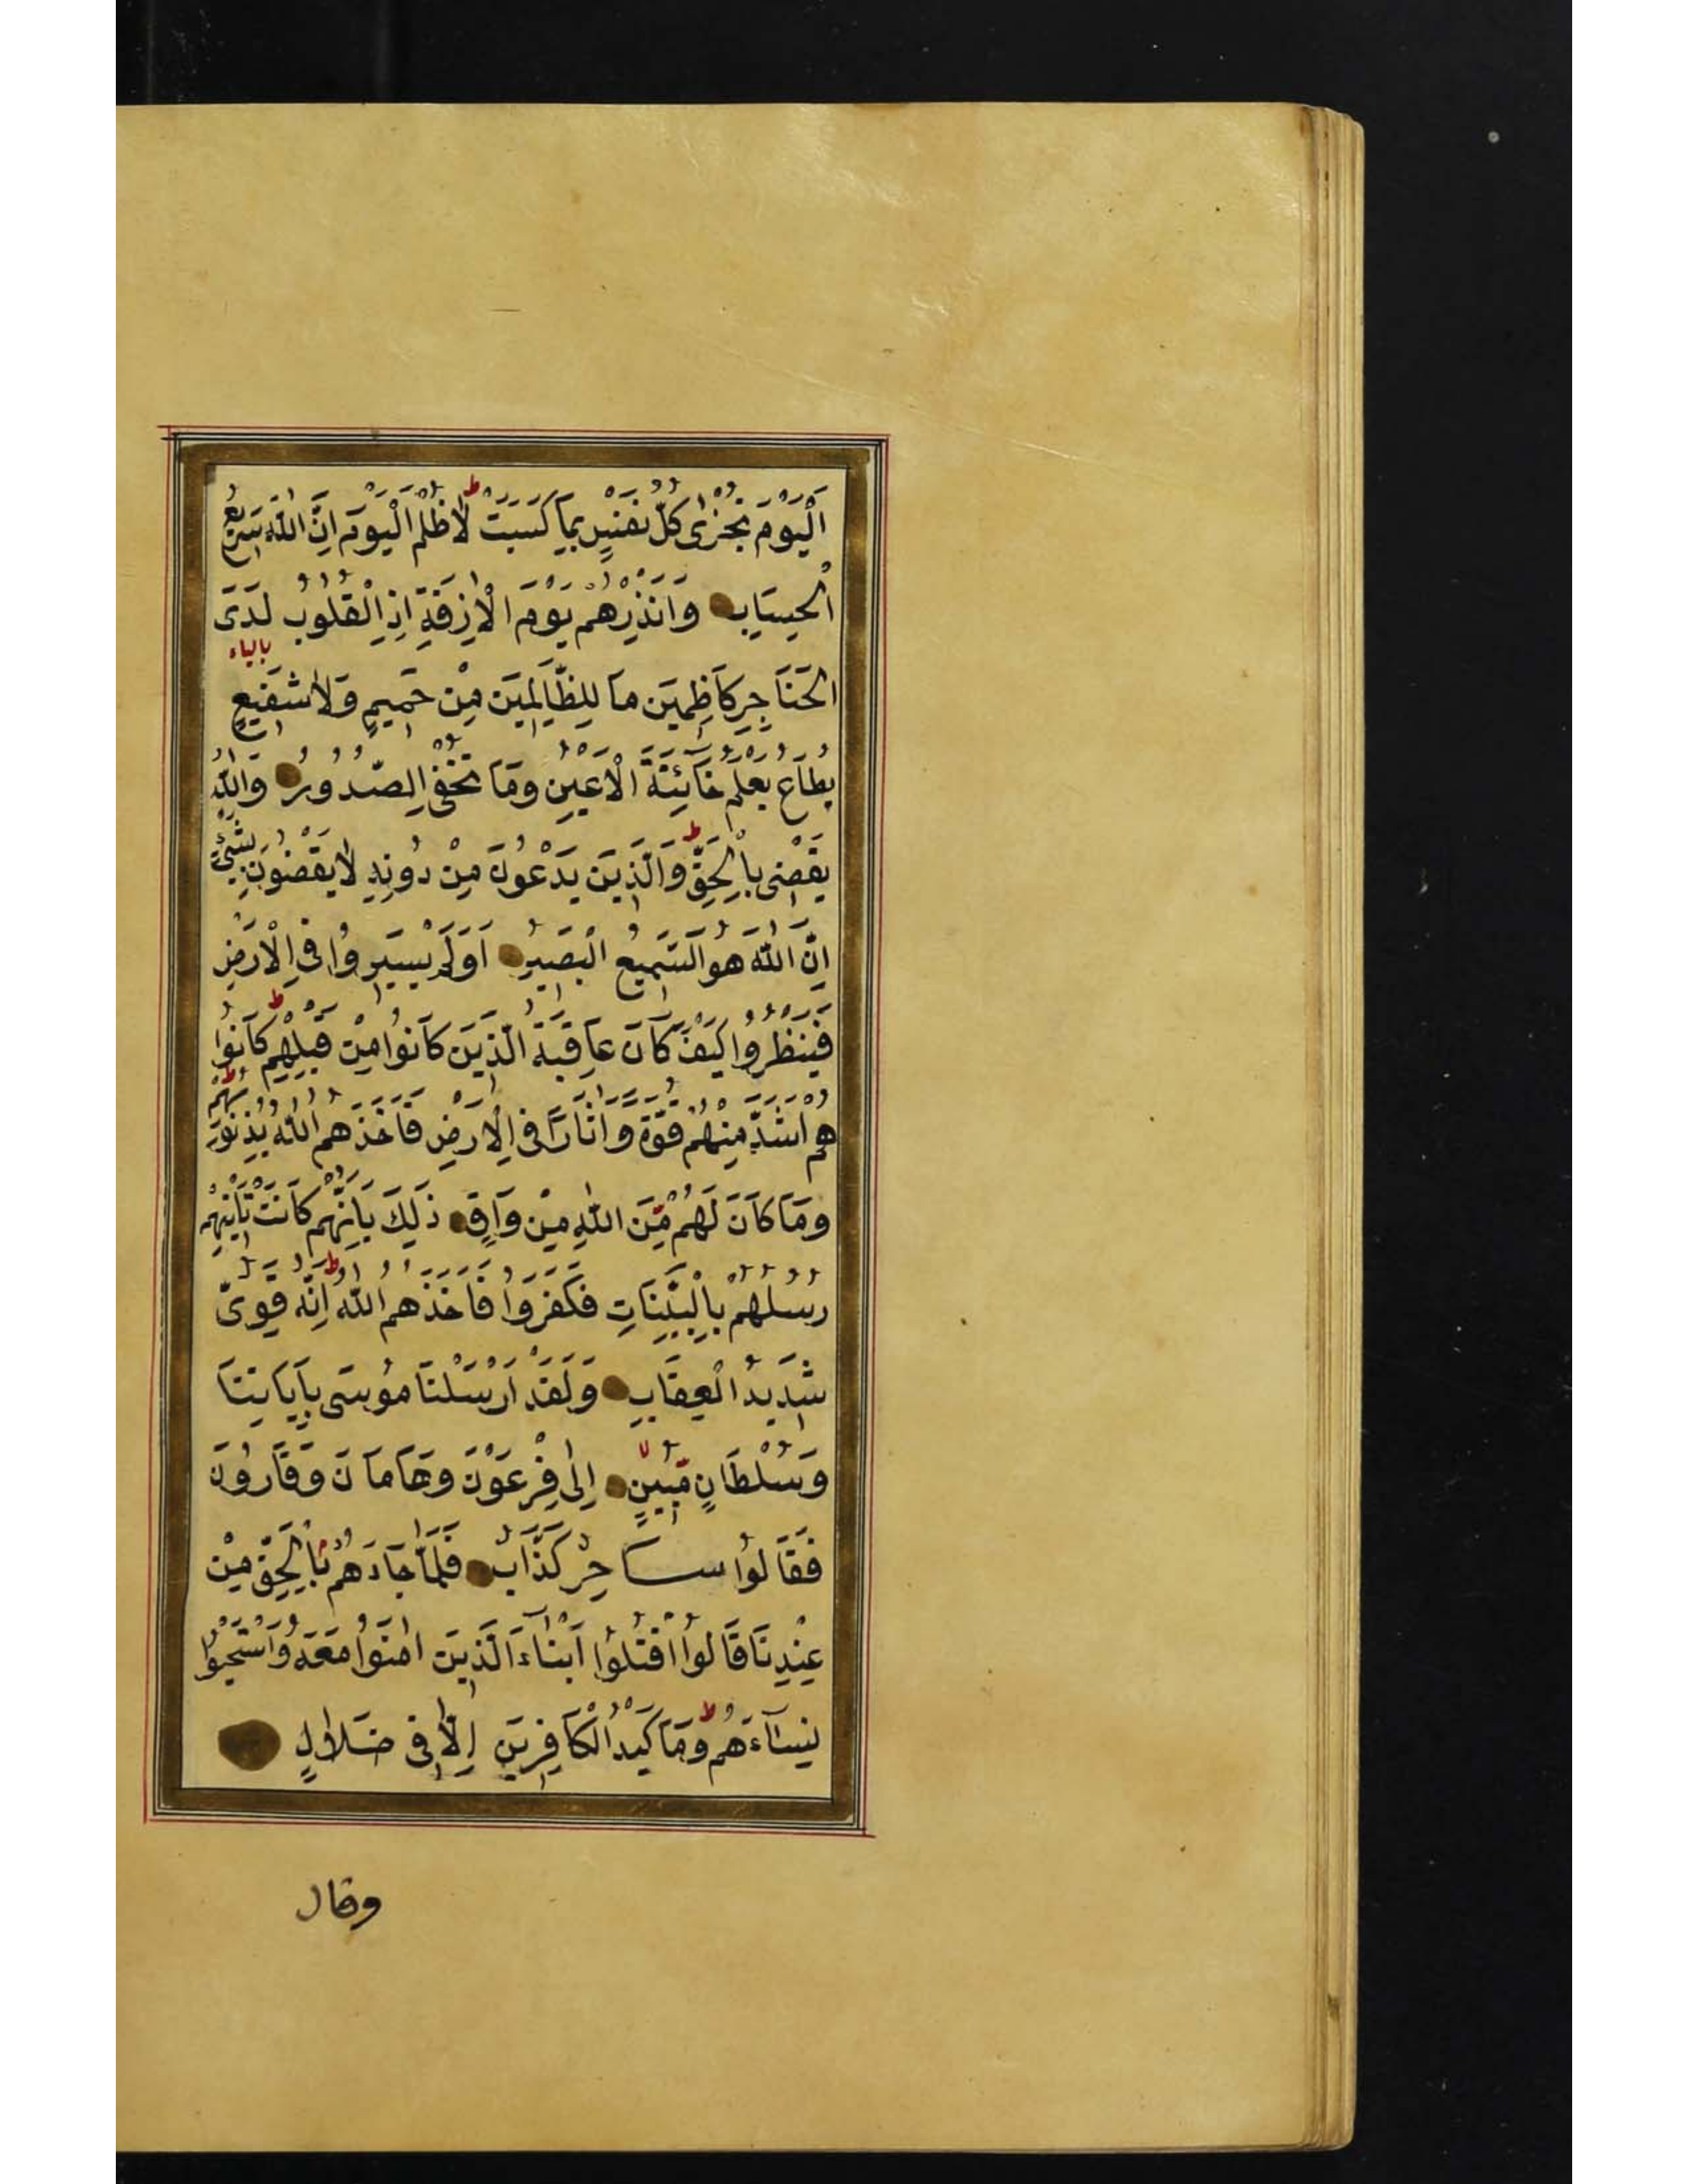 اَلْيَوْمَ تُجْزٰى كُلُّ نَفْسٍ بِمَا كَسَبَتْ ط لَا ظُلْمَ الْيَوْمَ اِنَّ اللّٰهَ سَرِيعُ
الْحِسَابِ وَاَنْذِرْهُمْ يَوْمَ الْاٰزِفَةِ اِذِ الْقُلُوبُ لَدَى
بالياء
الْحَنَاجِرِ كَاظِمِينَ مَا لِلظَّالِمِينَ مِنْ حَمِيمٍ وَلَا شَفِيعٍ
يُطَاعُ يَعْلَمُ خَآئِنَةَ الْاَعْيُنِ وَمَا تُخْفِى الصُّدُورُ وَاللّٰهُ
يَقْضِى بِالْحَقِّ ط وَالَّذِينَ يَدْعُونَ مِنْ دُونِهِ لَا يَقْضُونَ بِشَىْءٍ
اِنَّ اللّٰهَ هُوَ السَّمِيعُ الْبَصِيرُ اَوَلَمْ يَسِيرُوا فِى الْاَرْضِ
فَيَنْظُرُوا كَيْفَ كَانَ عَاقِبَةُ الَّذِينَ كَانُوا مِنْ قَبْلِهِمْ ط كَانُوا
هُمْ اَشَدَّ مِنْهُمْ قُوَّةً وَاٰثَارًا فِى الْاَرْضِ فَاَخَذَهُمُ اللّٰهُ بِذُنُوبِهِمْ ط
وَمَا كَانَ لَهُمْ مِّنَ اللّٰهِ مِنْ وَاقٍ ذٰلِكَ بِاَنَّهُمْ كَانَتْ تَاْتِيهِمْ
رُسُلُهُمْ بِالْبَيِّنَاتِ فَكَفَرُوا فَاَخَذَهُمُ اللّٰهُ ط اِنَّهُ قَوِىٌّ
شَدِيدُ الْعِقَابِ وَلَقَدْ اَرْسَلْنَا مُوسٰى بِاٰيَاتِنَا
وَسُلْطَانٍ مُّبِينٍ لا اِلٰى فِرْعَوْنَ وَهَامَانَ وَقَارُونَ
فَقَالُوا سَاحِرٌ كَذَّابٌ فَلَمَّا جَاءَهُمْ بِالْحَقِّ مِنْ
عِنْدِنَا قَالُوا اقْتُلُوا اَبْنَآءَ الَّذِينَ اٰمَنُوا مَعَهُ وَاسْتَحْيُوا
نِسَآءَهُمْ ط وَمَا كَيْدُ الْكَافِرِينَ اِلَّا فِى ضَلَالٍ
وقال